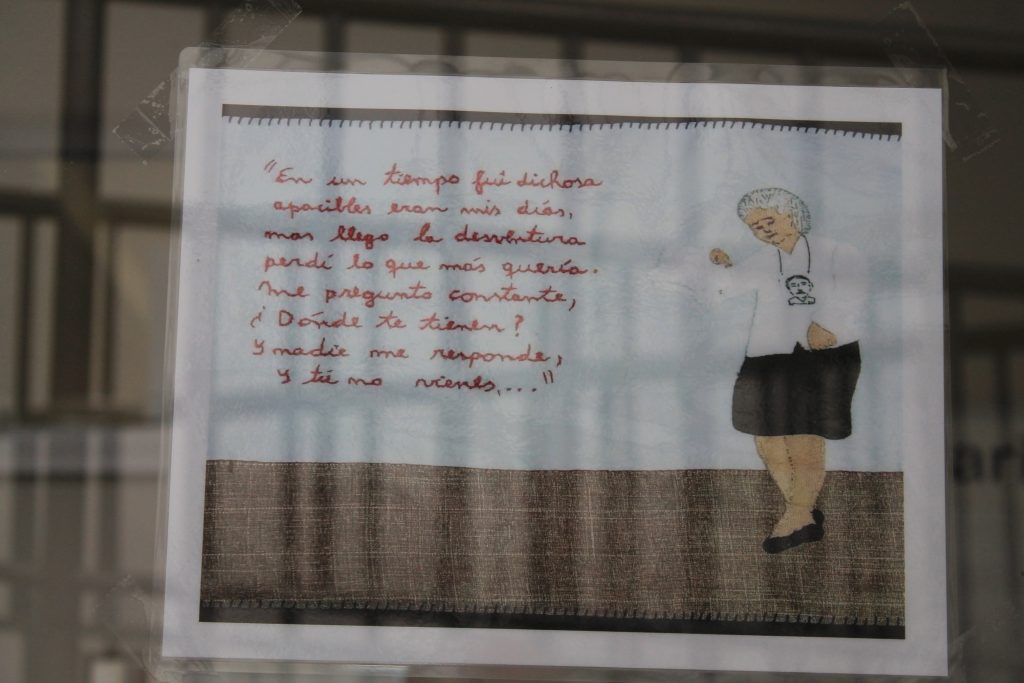 "En un tiempo fui dichosa
apacibles eran mis días,
mas llego la desventura
perdí lo que más quería.
Me pregunto constante,
¿Dónde te tienen?
Y nadie me responde,
Y tú no vienes,..."